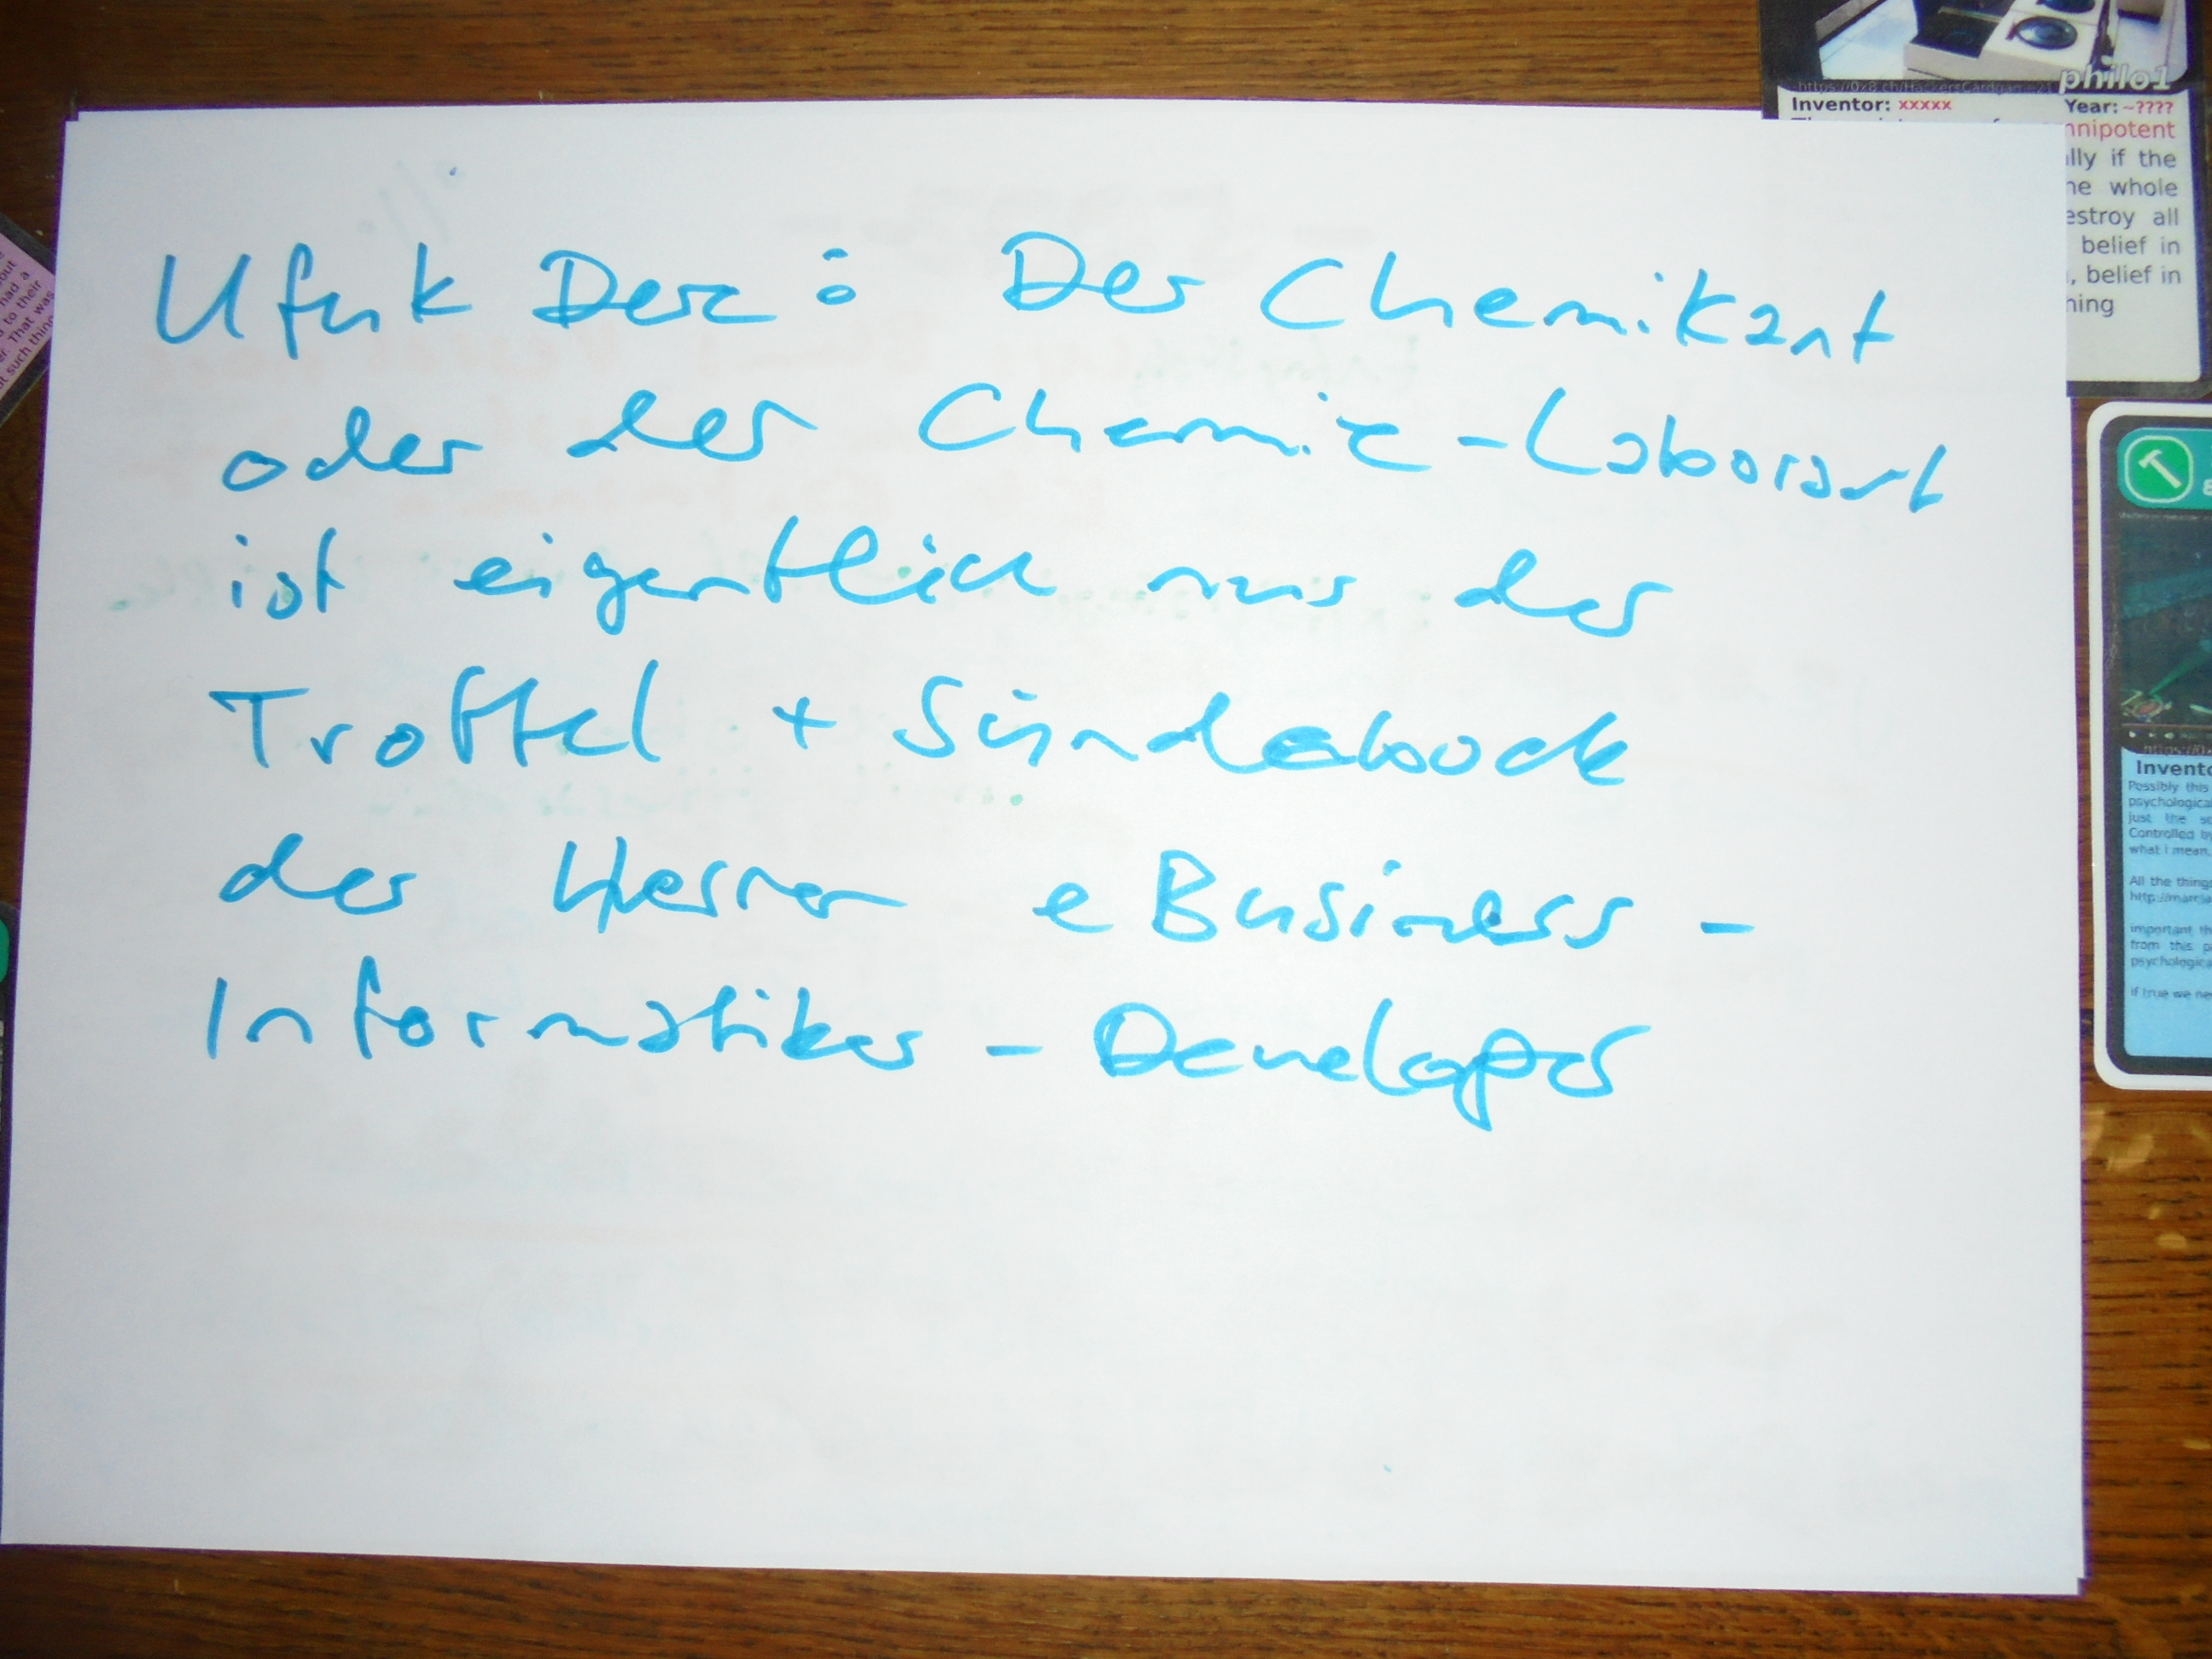 Ufuk Dere: Der Chemikant
oder der Chemie-Laborant
ist eigentlich nur der
Trottel + Sündebock
der Herren eBusiness-
Informatiker-Developer
philo1
Inventor: xxxxx Year: ~????
nnipotent
lly if the
he whole
estroy all
belief in
, belief in
hing
Invento
Possibly this
psychological
just the
Controlled by
what i mean.
All the things
important th
from this p
psychologica
if true we ne
out
had a
to their
er. That was
ut such thing